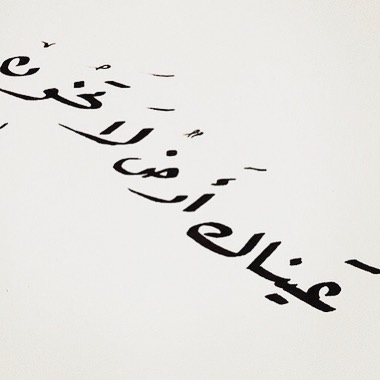 عَيناك أرضٌ لَا تَخُونْ